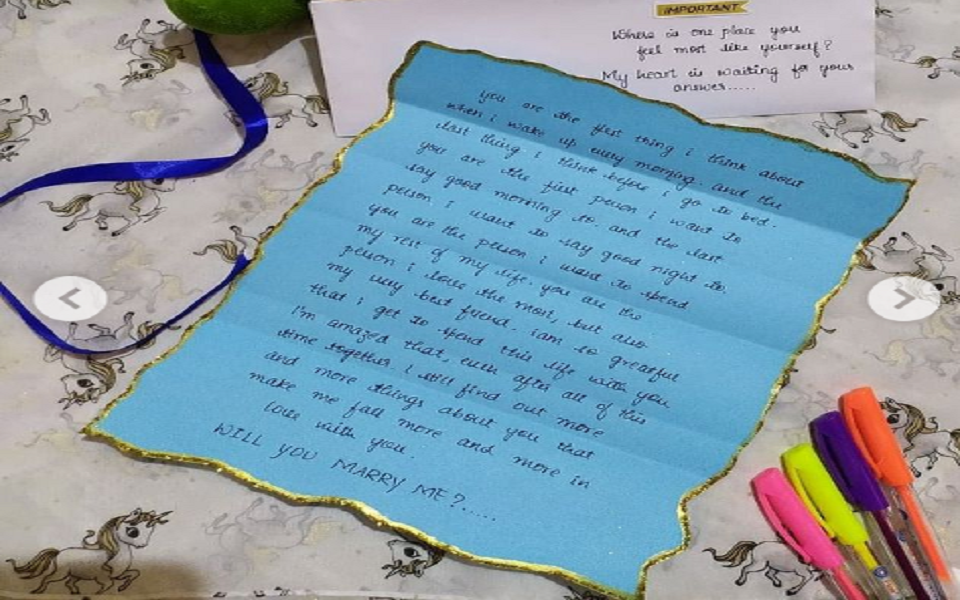 IMPORTANT
Where is one place you
feel most like yourself?
My heart is waiting for your
answer.....
you are the first thing i think about
when i wake up every morning. and the
last thing i think before i go to bed.
you are the first person i want to
say good morning to. and the last
person i want to say good night to.
you are the person i want to spend
my rest of my life. you are the
person i love the most, but also
my very best friend. iam so greatful
that i get to spend this life with you
I'm amazed that, even after all of this
time together, i still find out more
and more things about you that
make me fall more and more in
love with you.
WILL YOU MARRY ME?.....